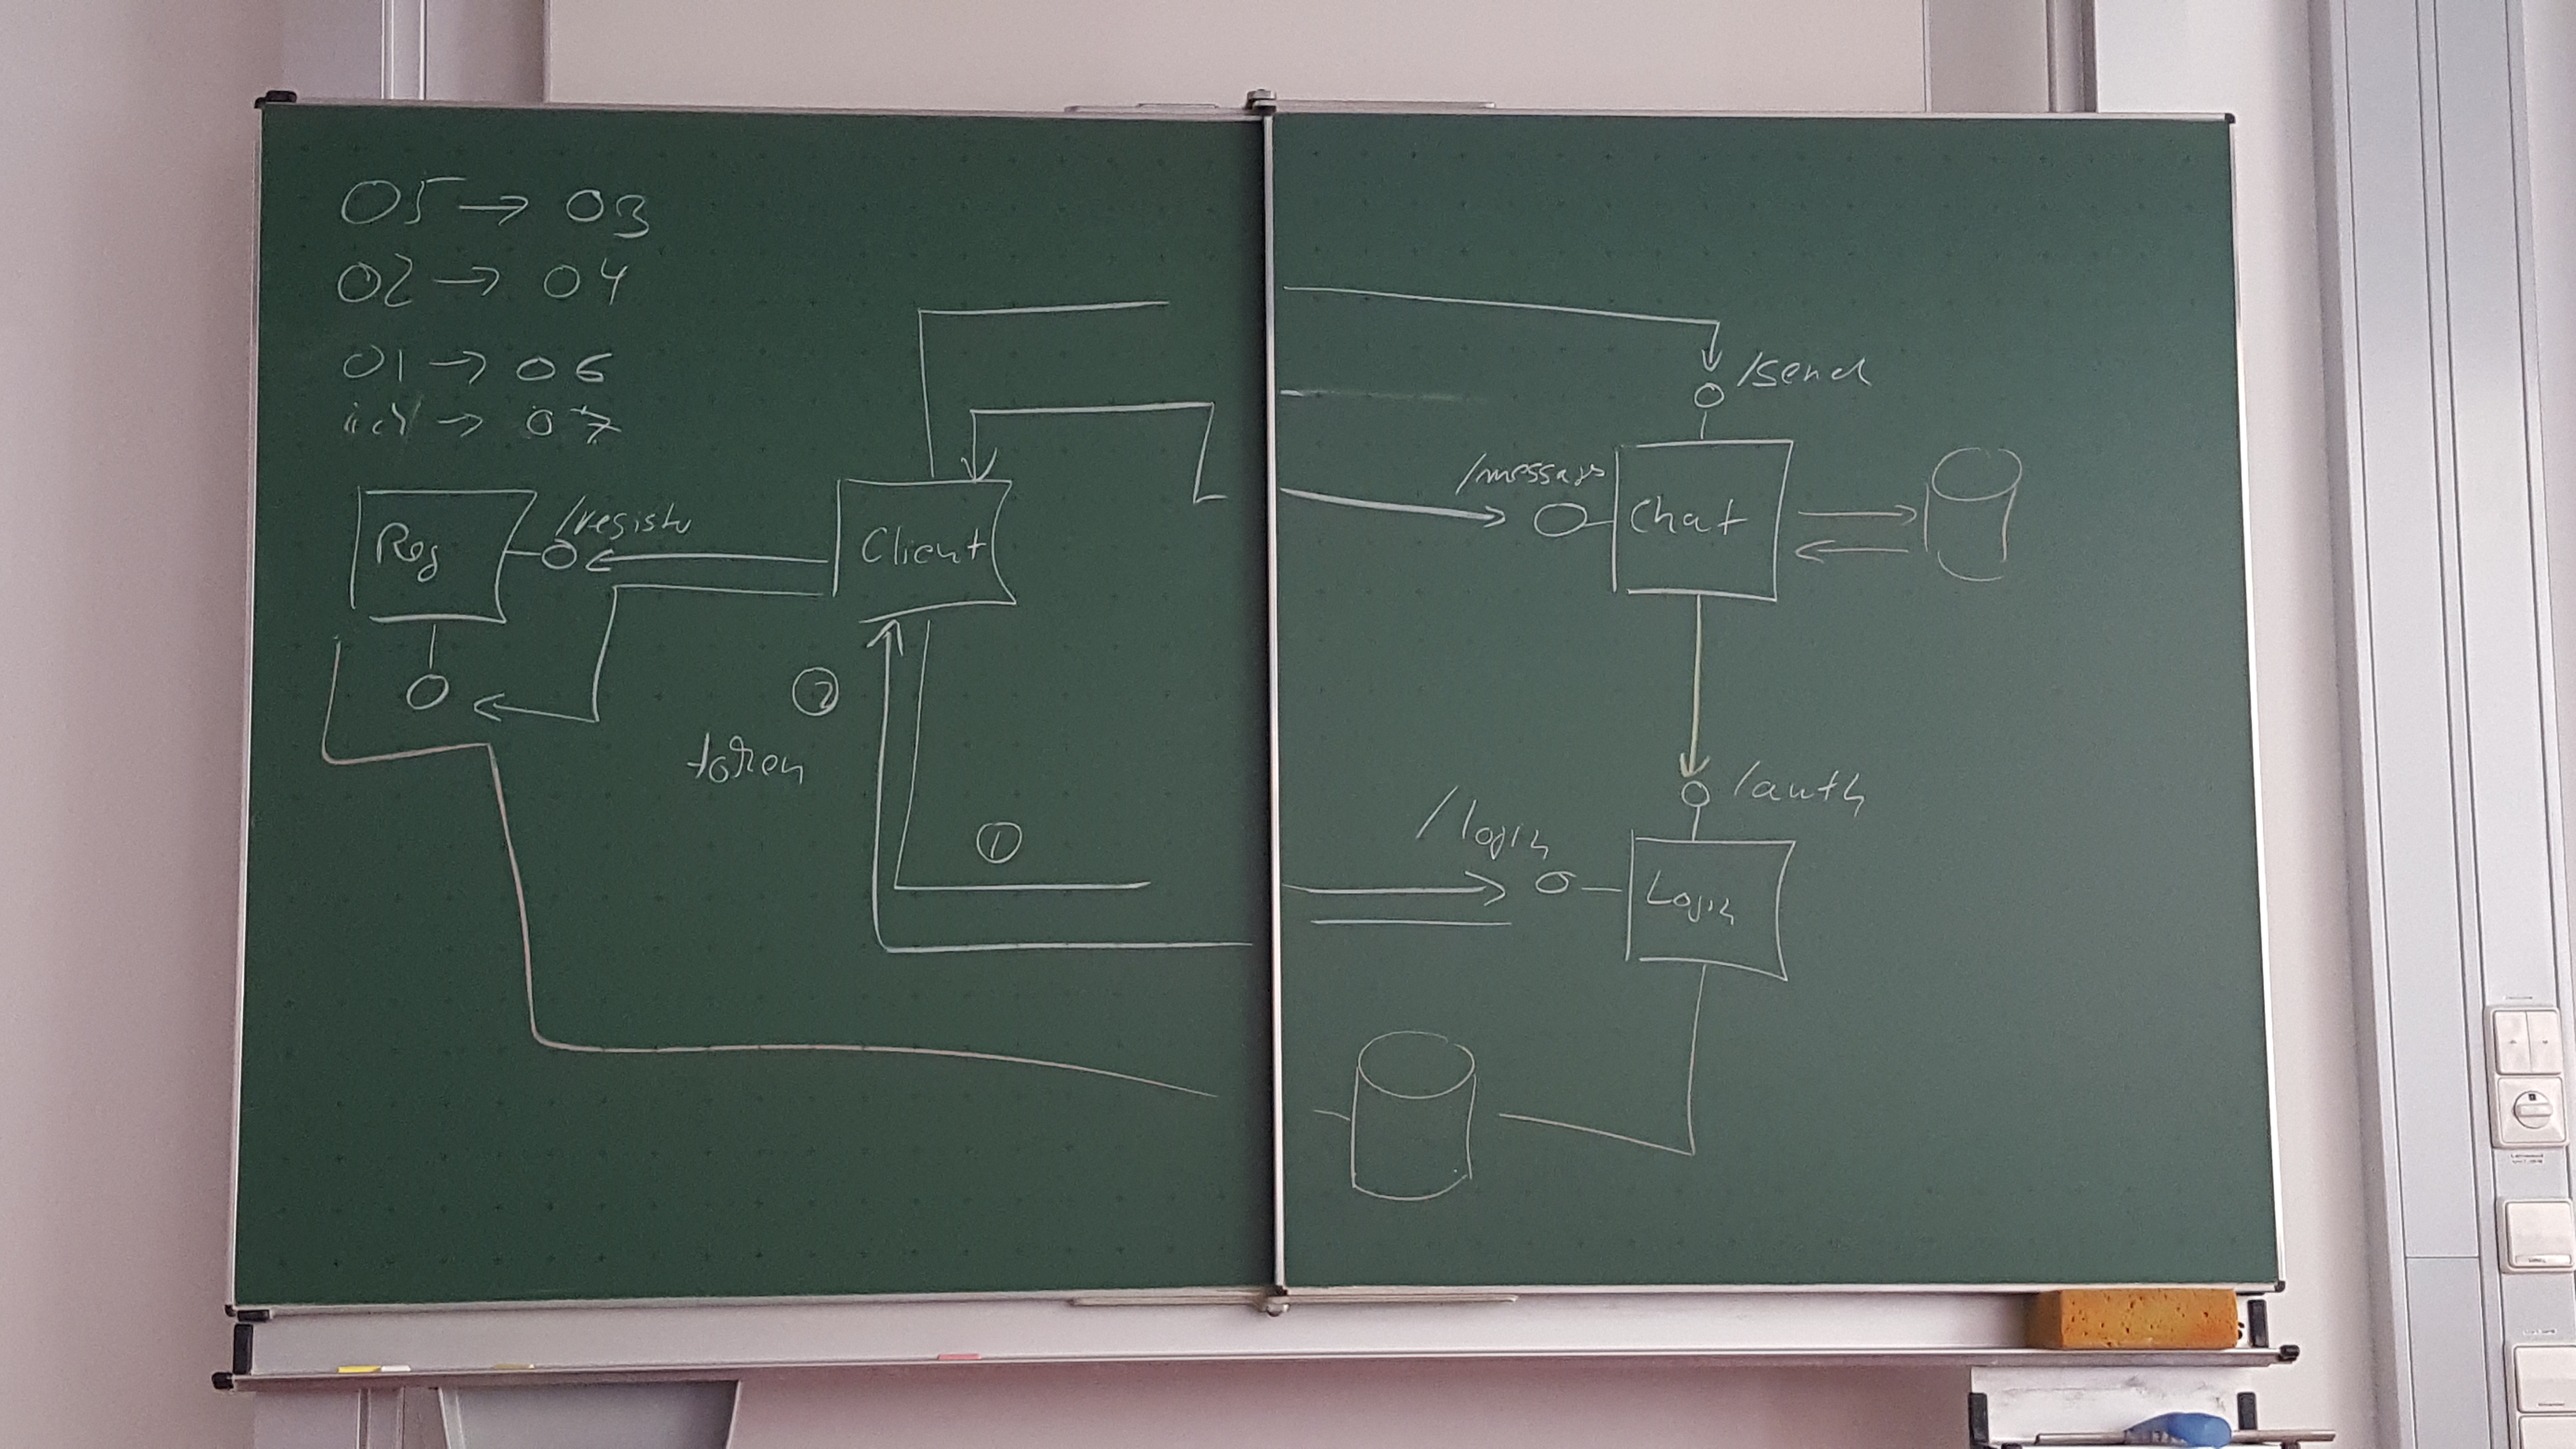 05 → 03
02 → 04
01 → 06
ich → 07
Reg
/registr
Client
②
token
①
/send
/messages
Chat
/auth
/login
Login